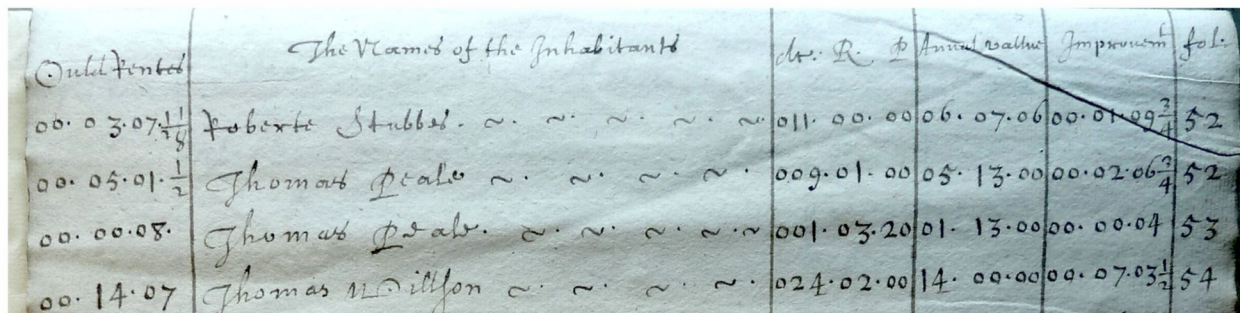 Ould Rentes The Names of the Inhabitants Ac. R. P Annual vallue Improvemt fol:
00. 03.07. Roberte Stubbes. ~ ~ ~ ~ ~ 011. 00. 00 06. 07.06 00.01.09 3/4 52
00. 05.01. 1/2 Thomas Peale ~ ~ ~ ~ 009.01.00 05. 13.00 00.02.06 3/4 52
00. 00.08. Thomas Peale. ~ ~ ~ ~ ~ 001. 03.20 01. 13.00 00. 00.04 53
00. 14.07 Thomas Willson ~ ~ ~ ~ 024.02.00 14. 00.00 00. 07.03 1/2 54